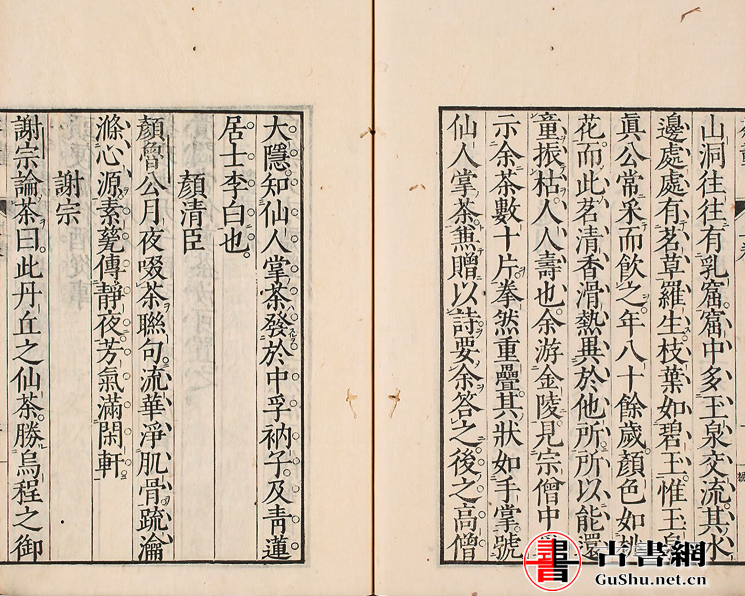 山洞往往有乳窟窟中多玉泉交流其水
邊處處有茗草羅生枝葉如碧玉惟玉泉
眞公常采而飲之年八十餘歲顏色如桃
花而此茗清香滑熱異於他所所以能還
童振枯人人壽也余游金陵見宗僧中
示余茶數十片拳然重疊其狀如手掌號
仙人掌茶兼贈以詩要余答之後之高僧
大隱知仙人掌茶發於中孚衲子及靑蓮
居士李白也。
顏清臣
顏魯公月夜啜茶聯句流華淨肌骨疏瀹
滌心源素甆傳靜夜芳氣滿閑軒
謝宗
謝宗論茶曰此丹丘之仙茶勝烏程之御
書
古書網
GuShu.net.cn